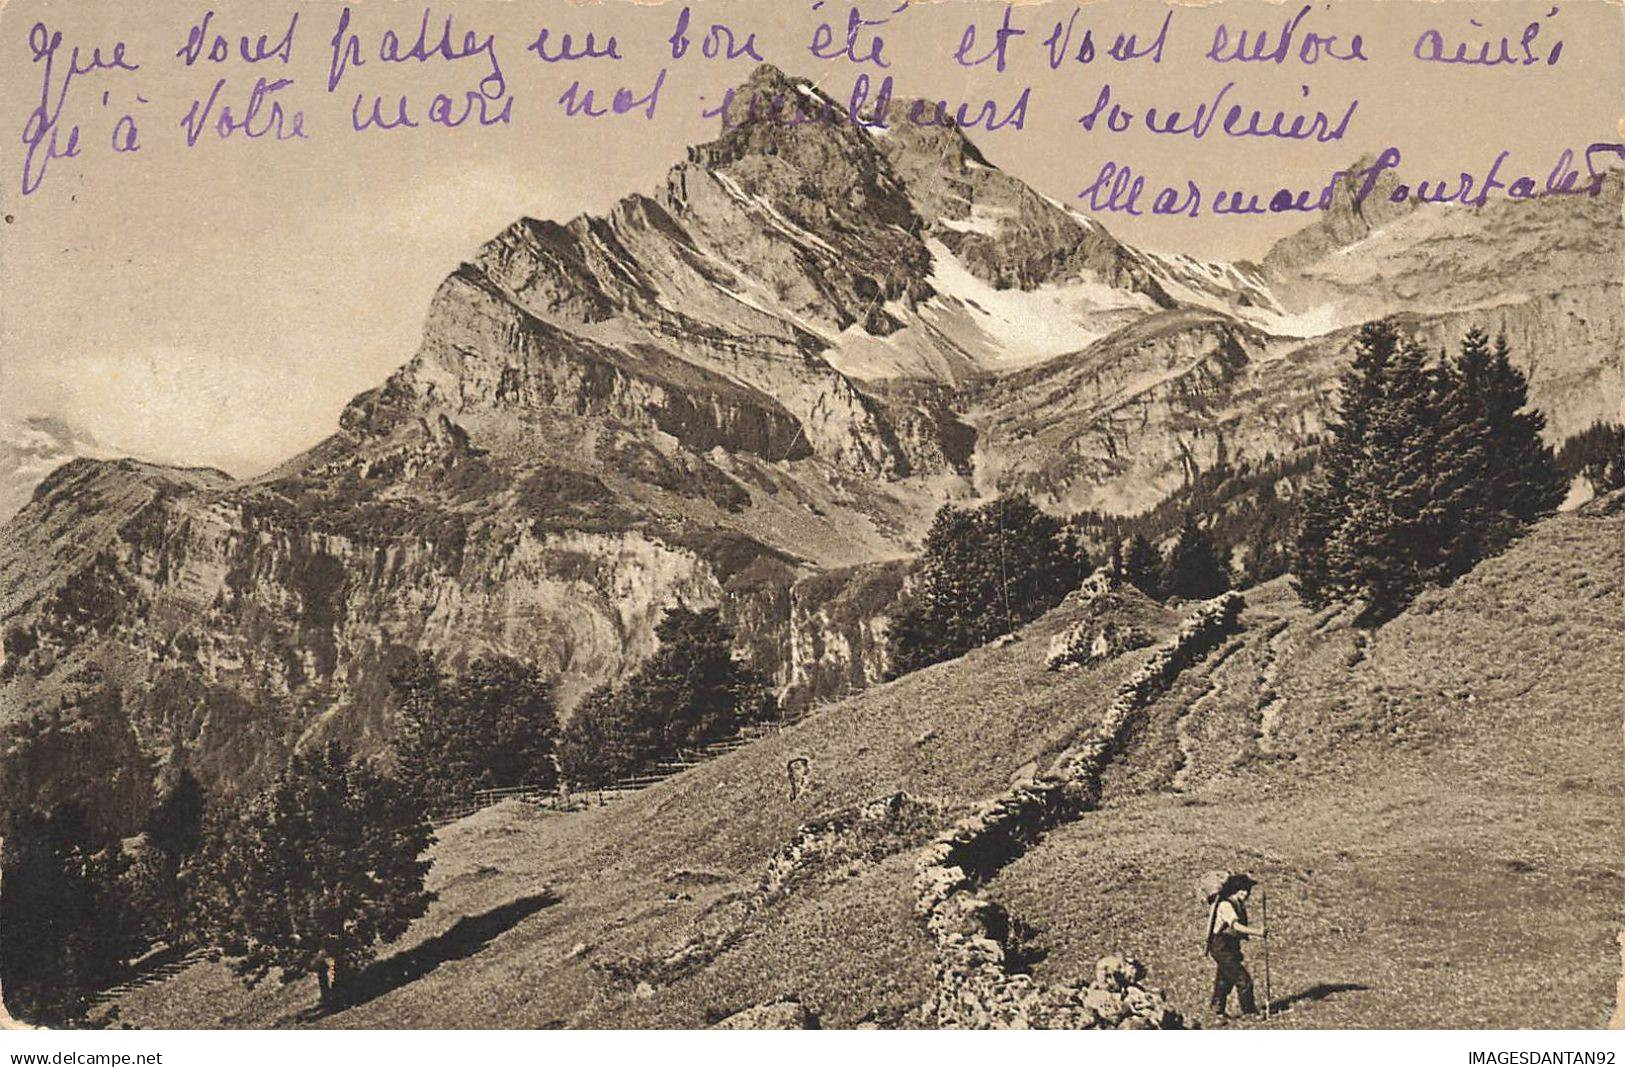 que vous passez un bon été et vous envoie ainsi
qu'à votre mari nos meilleurs souvenirs
www.delcampe.net
IMAGESDANTAN92